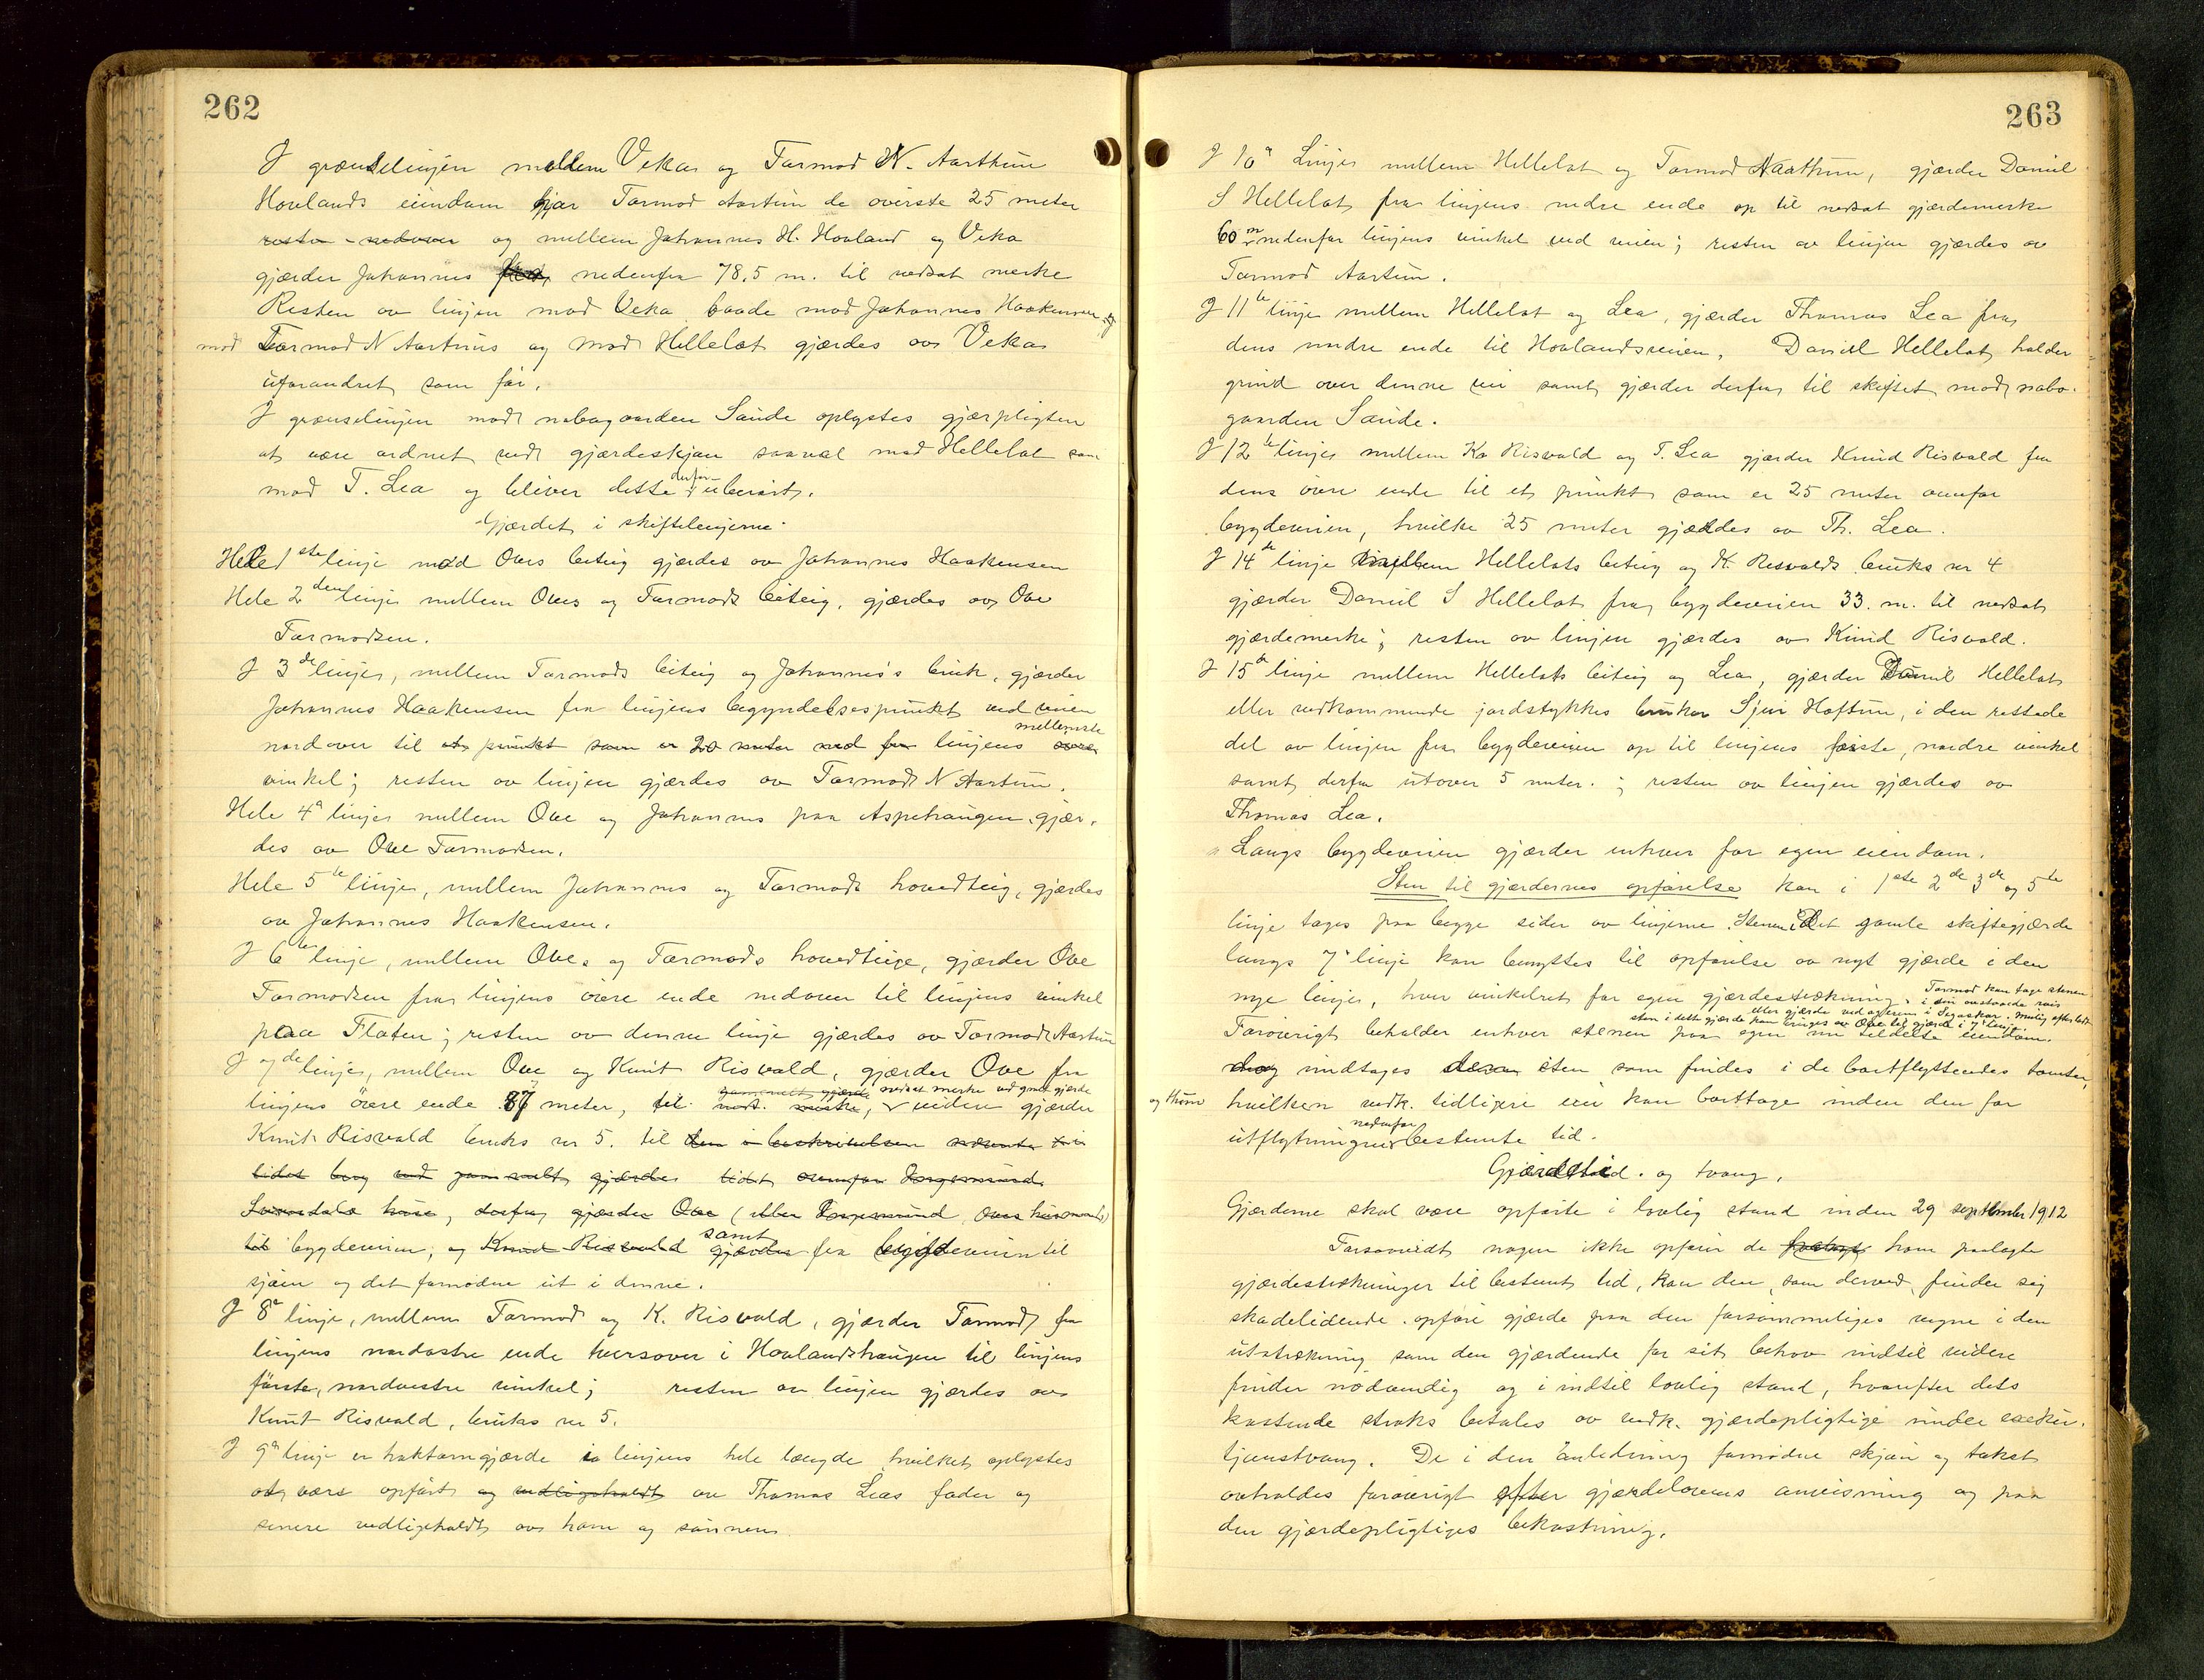 262
I grænselinjen mellem Veka og Tarmod N. Aarthun
Hovlands eiendom gjær Tormod Aartun de øverste 25 meter
resten nedover og mellem Johannes H. Hovland og Veka
gjærder Johannes nedenfra 78.5 m. til nedsat merke
Resten av linjen mod Veka baade mod Johannes Haakensen og
mod Tormod N Aartuns og mod Hellelat gjærdes av Veka
uforandret som før.
I grænselinjen mod nabogaarden Sande oplystes gjærpligten
at være ordnet ved gjærdeskjøn saavel mod Hellelat som
mod T. Lea og bliver dette derfor uberørt.
Gjærdet i skiftelinjerne.
Hele 1ste linje mod Oves beiteig gjærdes av Johannes Haakensen
Hele 2den linje mellem Oves og Tarmods beiteig, gjærdes av Ove
Tarmodsen.
I 3de linje, mellem Tarmods beiteig og Johannes's bruk, gjærder
Johannes Haakensen fra linjens begyndelsespunkt ved veien
nordover til et punkt som er 20 meter ned fra linjens øvre mellemste
vinkel; resten av linjen gjærdes av Tarmod N Aartun.
Hele 4de linje mellem Ove og Johannes paa Aspehaugen gjær-
des av Ove Tarmodsen.
Hele 5te linje, mellem Johannes og Tarmods hovedteig, gjærdes
av Johannes Haakensen.
I 6te linje, mellem Oves og Tarmods hovedteige, gjærder Ove
Tarmodsen fra linjens øvre ende nedover til linjens vinkel
paa Flaten; resten av denne linje gjærdes av Tarmod Aartun
I 7de linje, mellem Ove og Knut Risvold, gjærder Ove fra
linjens øvre ende 87 meter, til nedsat merke ved gmt gjærde, videre gjærder
Knut Risvold bruks nr 5. til den i beskrivelsen nævnte
lidet berg ved gammelt gjærde lidt ovenfor
hus, derfra gjærder Ove (eller Oves husmand)
til bygdeveien, og Knud Risvold gjærder samt fra bygdeveien til
sjøen og det fornødne ut i denne.
I 8de linje, mellem Tarmod og K. Risvold, gjærder Tarmod fra
linjens nordøstre ende tversover i Hovlandshaugen til linjens
første, nordvestre vinkel; resten av linjen gjærdes av
Knut Risvold, bruks nr 5.
I 9de linje er haktorngjærde i linjens hele længde hvilket oplystes
at være opført og vedligeholdt av Thomas Leas fader og
senere vedligeholdt av ham og sønnen.
263
I 10de Linje mellem Hellelat og Tormod N Aarthun, gjærder Daniel
S Hellelat fra linjens nedre ende op til nedsat gjærdemerke
60 m nedenfor linjens vinkel ved veien; resten av linjen gjærdes av
Tarmod Aartun.
I 11te linje mellem Hellelat og Lea, gjærder Thomas Lea fra
dens nedre ende til Hovlandsveien, Daniel Hellelat holder
grind over denne vei samt gjærder derfra til skiftet mod nabo-
gaarden Sande.
I 12te linje mellem Kn Risvold og T. Lea gjærder Knud Risvold fra
dens øvre ende til et punkt som er 25 meter ovenfor
bygdeveien, hvilke 25 meter gjærdes av Th. Lea.
I 14de linje mellem Hellelats beiteig og K. Risvolds bruks nr 4
gjærder Daniel S Hellelat fra bygdeveien 33. m. til nedsat
gjærdemerke; resten av linjen gjærdes av Knud Risvold.
I 15de linje mellem Hellelats beiteig og Lea, gjærder Daniel Hellelat
eller vedkommende jordstykkes bruker Sjur Hoftun, i den rettede
del av linjen fra bygdeveien op til linjens første, nordre vinkel
samt derfra utover 5 meter.; resten av linjen gjærdes av
Thomas Lea.
Langs bygdeveien gjærder enhver for egen eiendom.
Sten til gjærdernes opførelse kan i 1ste 2de 3de og 5te
linje tages paa begge sider av linjerne. Stenen i det gamle skiftegjærde
langs 7de linje kan benyttes til opførelse av nyt gjærde i den
nye linje, hver vinkelret for egen gjærdestrækning. Tarmod kan tage stenen
i den
sten i dette gjærde kan bringes av Ove til gjærde i 7de linje.
Forøvrigt beholder enhver stenen paa egen nu tildelte eiendom.
dog undtages sten som findes i de bortflyttendes tomter,
og hvilken vedk. tidligere eier kan borttage inden den for
utflytningen nedenfor bestemte tid.
Gjærdetid. og tvang.
Gjærderne skal være opførte i lovlig stand inden 29 september 1912
Forsaavidt nogen ikke opfører de ham paalagte
gjærdestrækninger til bestemt tid, kan den, som derved finder sig
skadelidende. opføre gjærde paa den forsømmeliges vegne i den
utstrækning som den gjærdende for sit behov indtil videre
finder nødvendig og i indtil lovlig stand, hvorefter dets
kostende straks betales av vedk. gjærdepligtige under exeku-
tjonstvang. De i den anledning fornødne skjøn og takst
avholdes forøvrigt efter gjærdelovens anvisning og paa
den gjærdepligtiges bekostning.